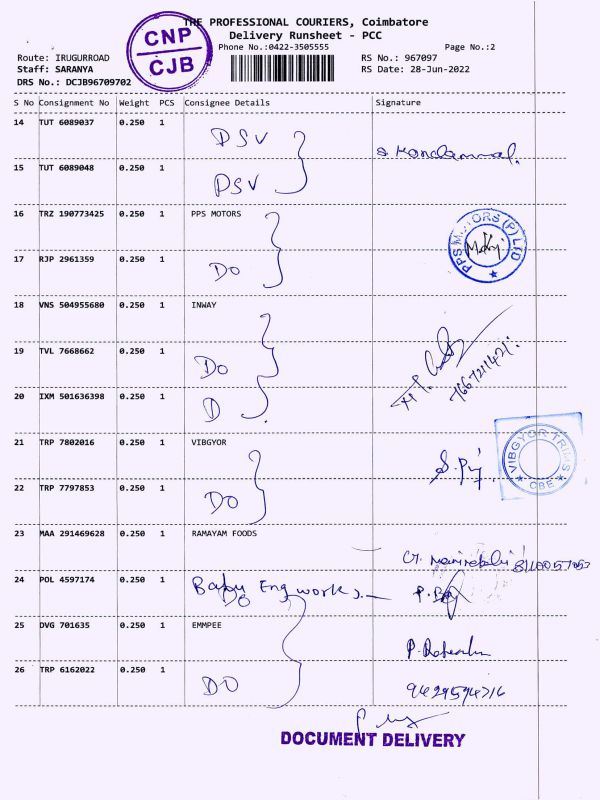 THE PROFESSIONAL COURIERS, Coimbatore
CNP
CJB
Delivery Runsheet - PCC
Phone No.:0422-3505555
Page No.:2
Route: IRUGURROAD
RS No.: 967097
Staff: SARANYA
RS Date: 28-Jun-2022
DRS No.: DCJB96709702
S No Consignment No Weight PCS Consignee Details Signature
14 TUT 6089037 0.250 1 DSV
15 TUT 6089048 0.250 1 DSV
16 TRZ 190773425 0.250 1 PPS MOTORS
PPS MOTORS (P) LTD
17 RJP 2961359 0.250 1 DO
18 VNS 504955680 0.250 1 INWAY
19 TVL 7668662 0.250 1 DO
7667211421
20 IXM 501636398 0.250 1 D
21 TRP 7802016 0.250 1 VIBGYOR
VIBGYOR TRIMS
CBE
22 TRP 7797853 0.250 1 DO
23 MAA 291469628 0.250 1 RAMAYAM FOODS
24 POL 4597174 0.250 1 Babu Eng works
DO
25 DVG 701635 0.250 1 EMMPEE
26 TRP 6162022 0.250 1 DO
DOCUMENT DELIVERY